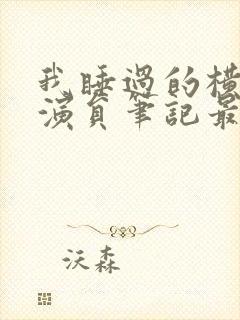 我睡過的橫
演員筆記最
沃森